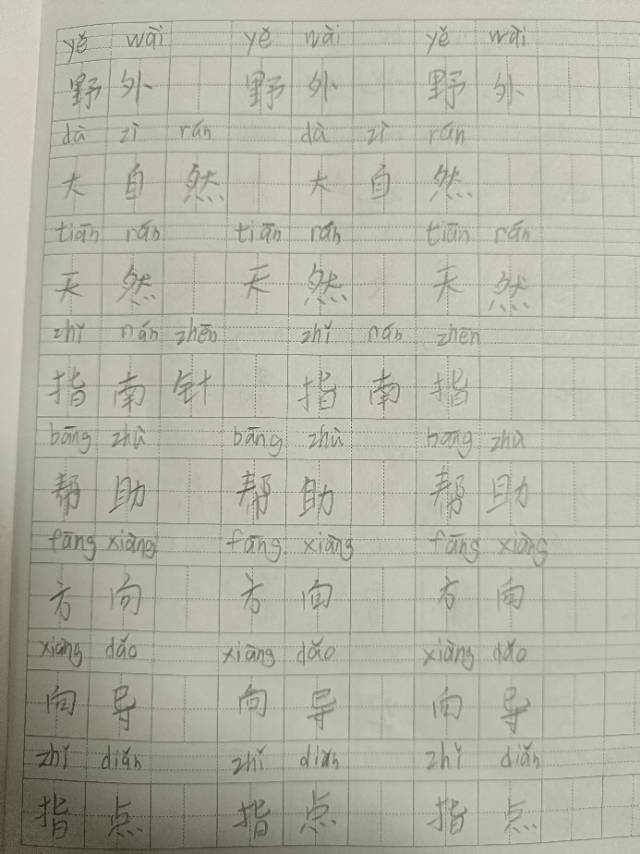 yě wài yě wài yě wài
野外 野外 野外
dà zì rán dà zì rán
大自然 大自然
tiān rán tiān rán tiān rán
天然 天然 天然
zhǐ nán zhēn zhǐ nán zhēn
指南针 指南指
bāng zhù bāng zhù bāng zhù
帮助 帮助 帮助
fāng xiàng fāng xiàng fāng xiàng
方向 方向 方向
xiàng dǎo xiàng dǎo xiàng dǎo
向导 向导 向导
zhǐ diǎn zhǐ diǎn zhǐ diǎn
指点 指点 指点